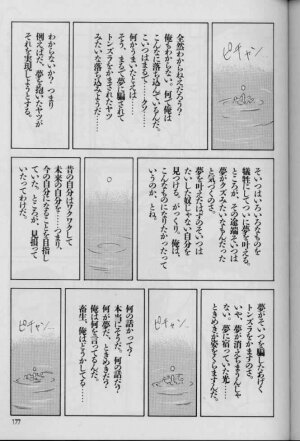 ピチャン
全然わからねえだろう？
俺もわからない。何で俺は
こんなに落ち込んでるんだ。
こいつはまるで…クソッ
何かうまいたとえは…
そう、まるで夢に騙されて
トンズラをかまされたヤツ
みたいな落ち込みようだ…
わからないか？つまり
例えばだ、夢を抱いたヤツが
それを実現しようとする。
そいつはいろいろなものを
犠牲にしてついに夢を叶える。
ところが、その途端そいつは
夢がクズみたいなもんだった
と気づくのさ。
夢を叶えたはずのそいつは
たいした奴じゃない自分を
見つける。がっくり。俺は、
こんなものになりたかったって
いうのか、とね。
昔の自分はワクワクして
未来の自分を……つまり、
今の自分になることを目指し
ていた。ところが、見損って
いたってわけだ。
夢がそいつを騙したあげく
トンズラをかますのさ。
いや、夢が消えちまうんじゃ
ない。夢に宿っていた光……
ときめきが姿をくらますんだ。
ピチャン
何の話かって？
本当にそうだ。何の話だ？
何が夢だ、ときめきだ？
俺は何を言ってるんだ。
畜生。俺はどうかしてる…
ピチャン
177